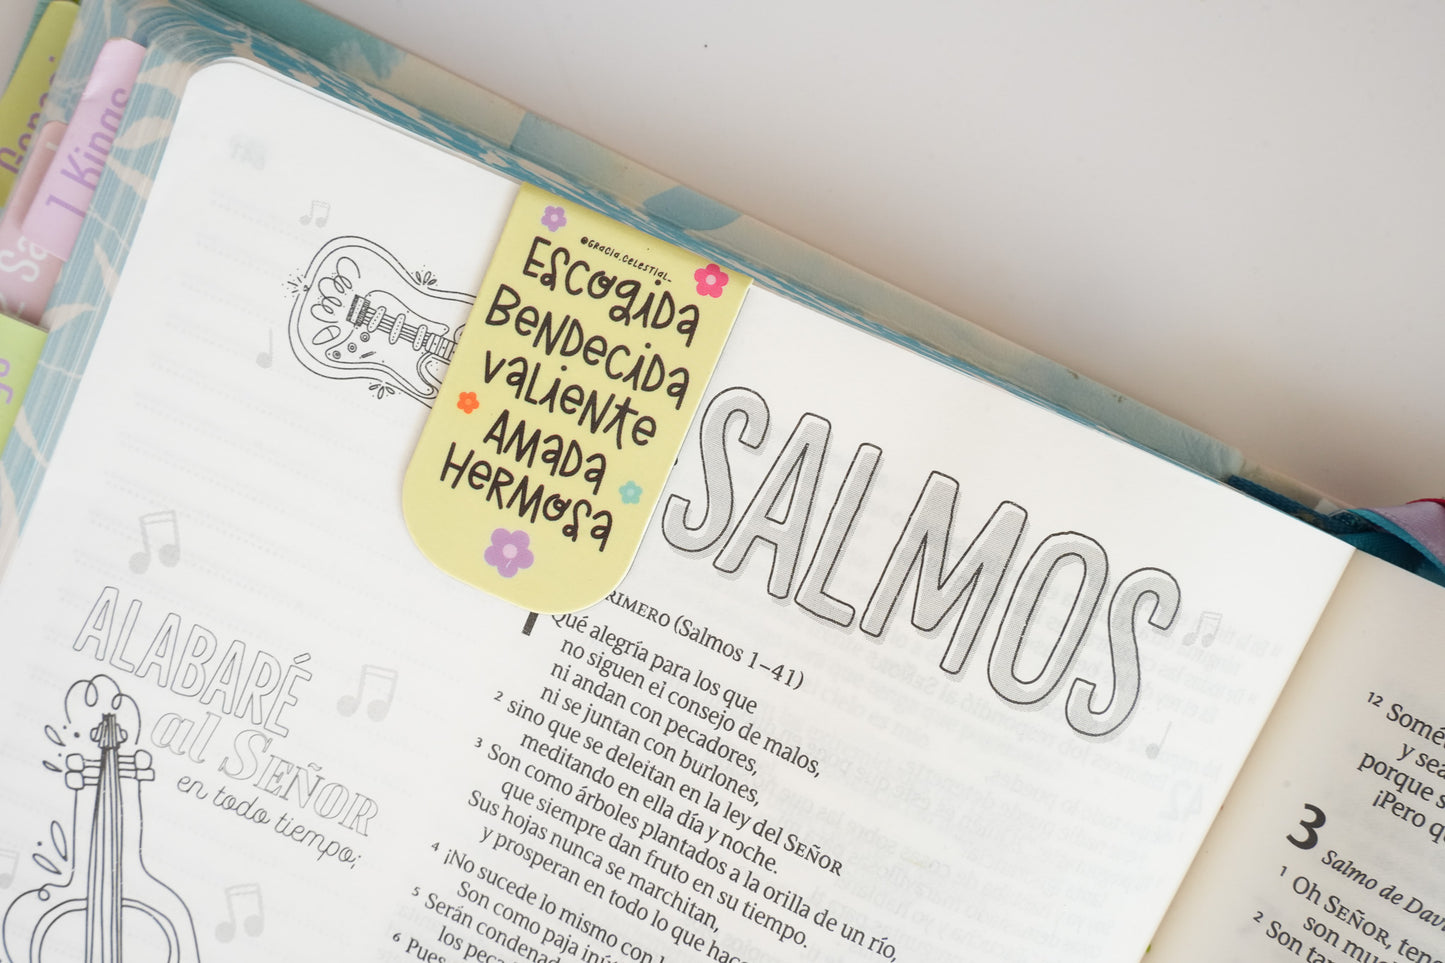 1 Kings
@GRACIA.CELESTIAL_
ESCOGIDA
BENDECIDA
VALIENTE
AMADA
HERMOSA
SALMOS
ALABARÉ
al SEÑOR
en todo tiempo;
(Salmos 1–41)
Qué alegría para los que
no siguen el consejo de malos,
ni andan con pecadores,
ni se juntan con burlones,
2 sino que se deleitan en la ley del SEÑOR
meditando en ella día y noche.
3 Son como árboles plantados a la orilla de un río,
que siempre dan fruto en su tiempo.
Sus hojas nunca se marchitan,
y prosperan en todo lo que
4 ¡No sucede lo mismo con
Son como paja
5 Serán
los
6 Pues
12
y
porque
¡Pero
3
Salmo de
1 Oh SEÑOR,
son
2 Son